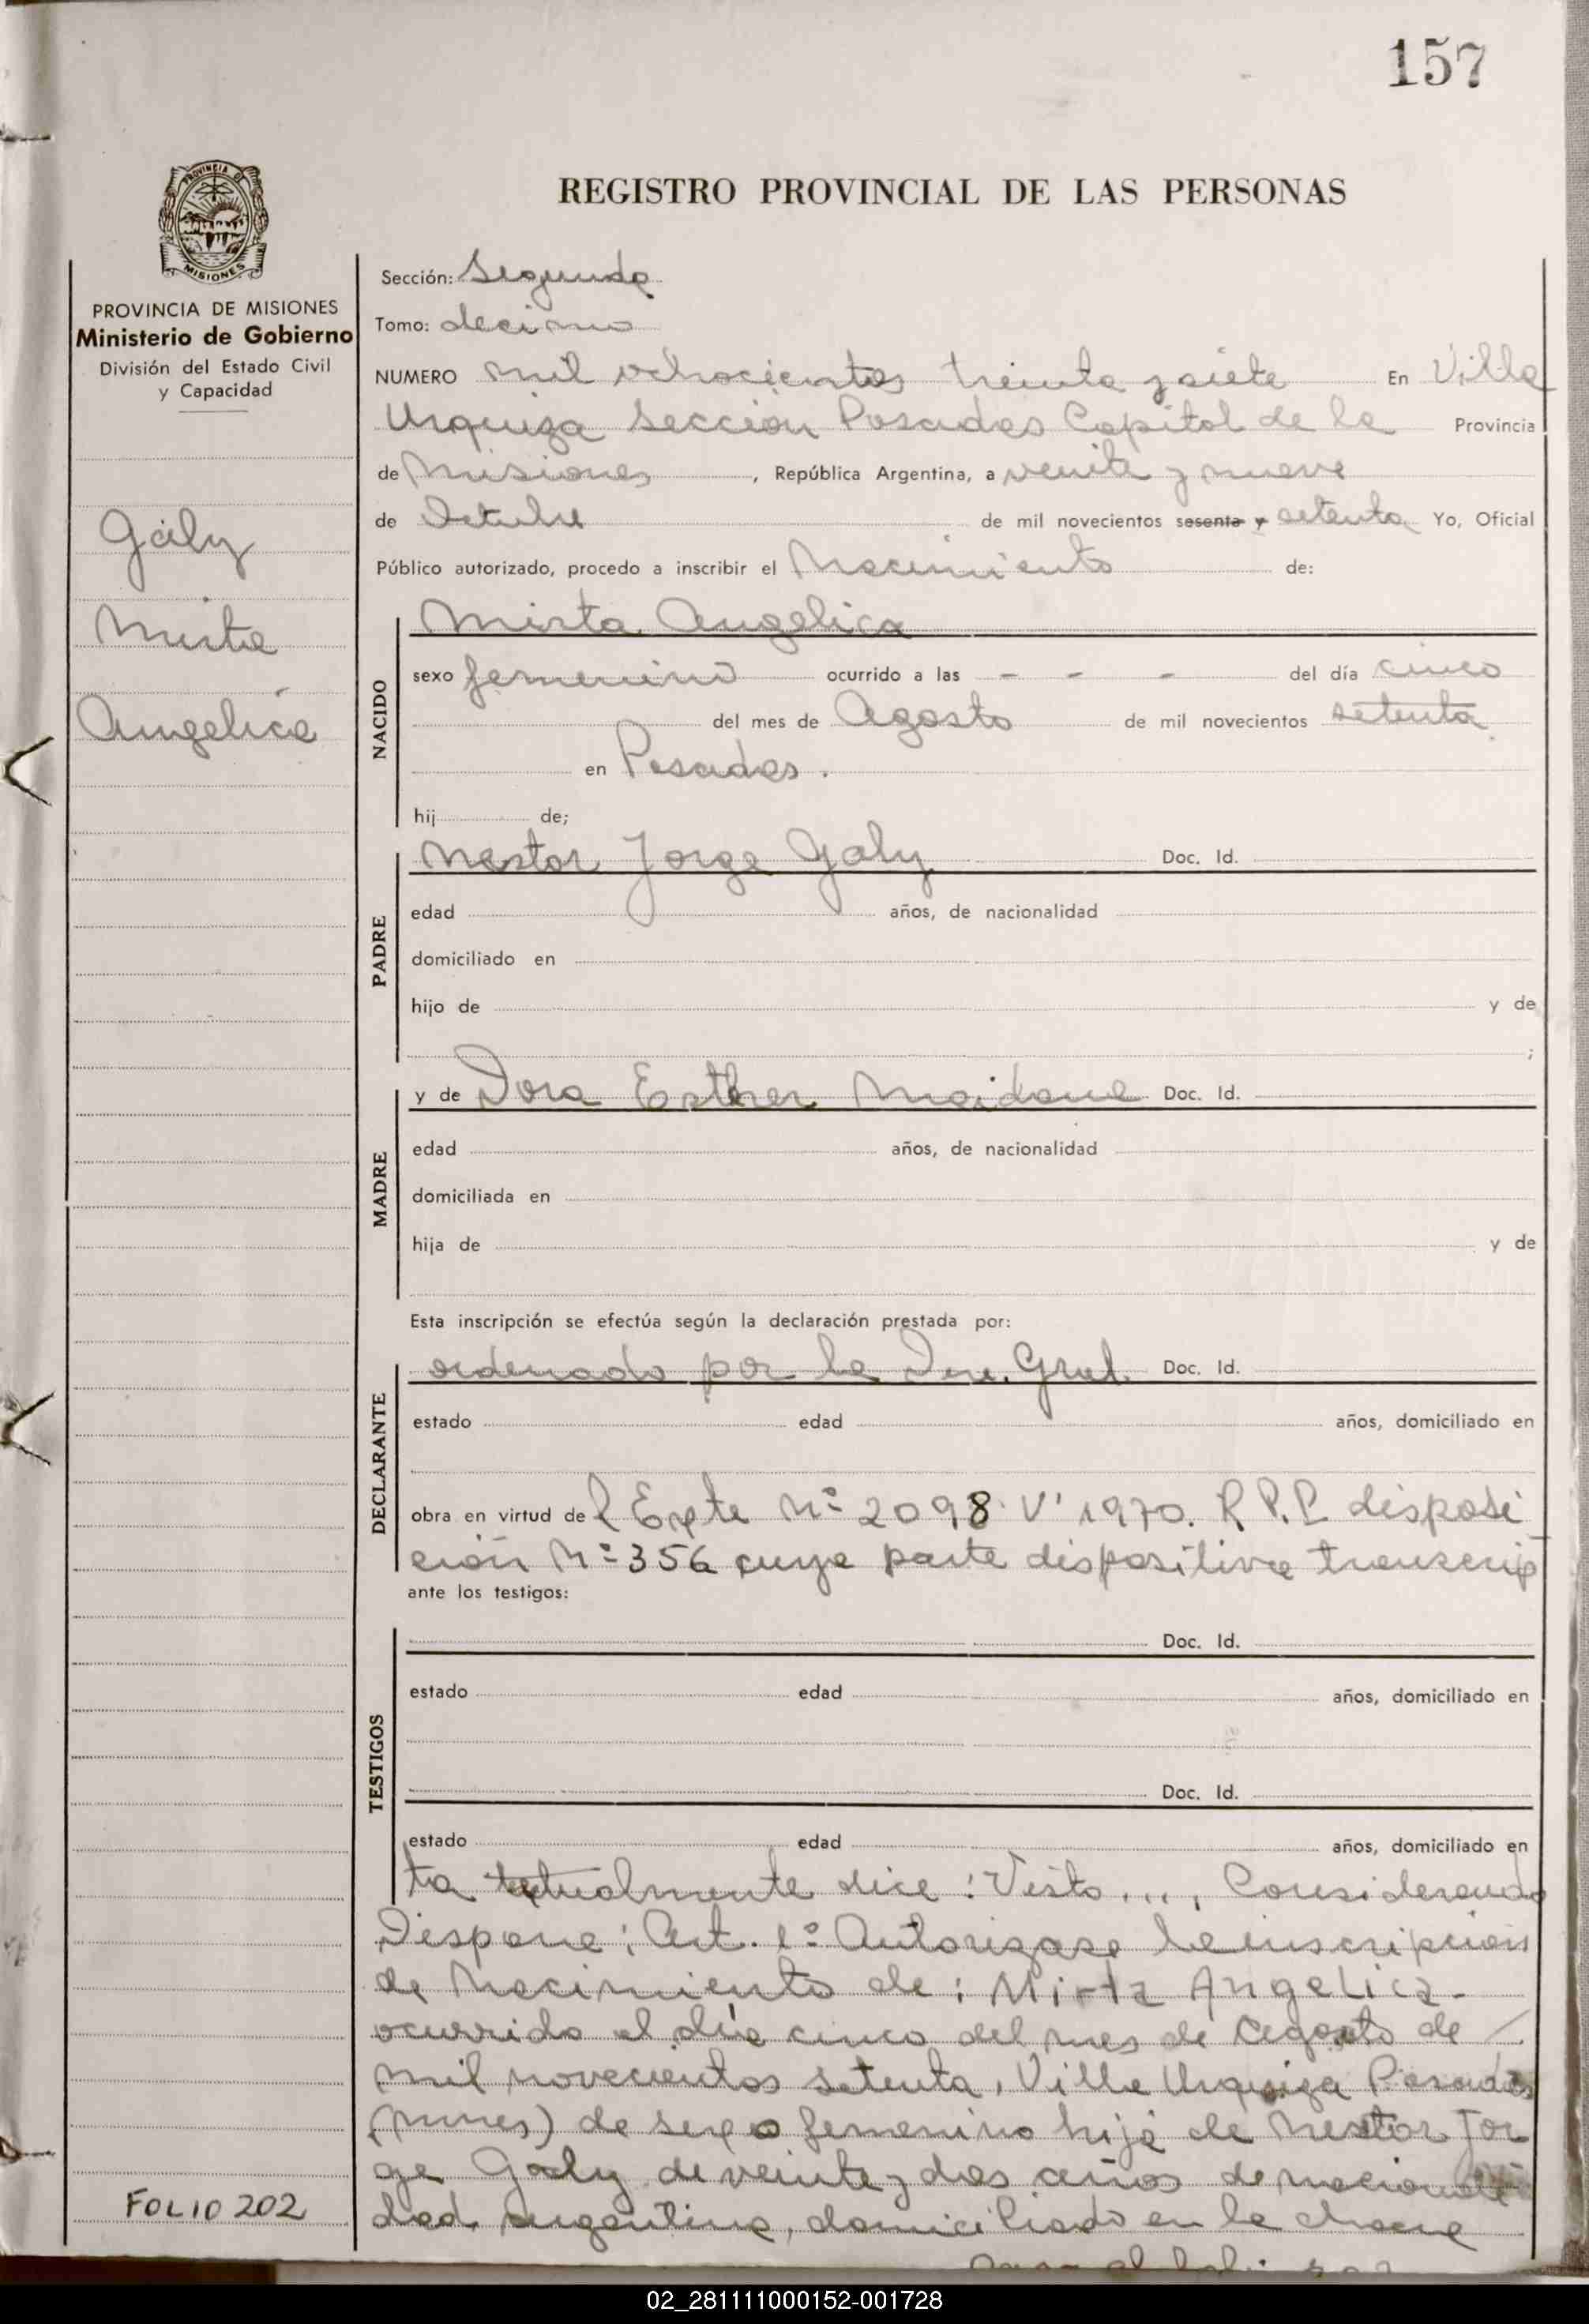 157
PROVINCIA DE MISIONES
REGISTRO PROVINCIAL DE LAS PERSONAS
PROVINCIA DE MISIONES
Ministerio de Gobierno
División del Estado Civil
y Capacidad
Galy
Mirta
Angelica
FOLIO 202
Sección: Segunda
Tomo: decimo
NUMERO mil ochocientos treinta y siete En Villa
Urquiza Sección Posadas Capital de la Provincia
de Misiones, República Argentina, a veinte y nueve
de Octubre de mil novecientos sesenta y setenta Yo, Oficial
Público autorizado, procedo a inscribir el Nacimiento de:
NACIDO
Mirta Angelica
sexo femenino ocurrido a las - - - del día cinco
del mes de Agosto de mil novecientos setenta
en Posadas.
hij de;
PADRE
Nestor Jorge Galy Doc. Id.
edad años, de nacionalidad
domiciliado en
hijo de y de
;
MADRE
y de Dora Esther Maidana Doc. Id.
edad años, de nacionalidad
domiciliada en
hija de y de
Esta inscripción se efectúa según la declaración prestada por:
DECLARANTE
ordenado por la Gral. Doc. Id.
estado edad años, domiciliado en
obra en virtud de l Expte Nº 2098 V' 1970. R.P.P. disposi
ción Nº 356 cuya parte dispositiva transcrip
ante los testigos:
TESTIGOS
Doc. Id.
estado edad años, domiciliado en
Doc. Id.
estado edad años, domiciliado en
ta textualmente dice: Visto..., Considerando
Dispone: Art. 1º Autorizase la inscripcion
de Nacimiento de: Mirta Angelica -
ocurrido el día cinco del mes de Agosto de /
mil novecientos setenta, Villa Urquiza Posadas
(mnes) de sexo femenino hija de Nestor Jor
ge Galy de veinte y dos años de nacionali
dad argentina, domiciliado en la chacra
02_281111000152-001728